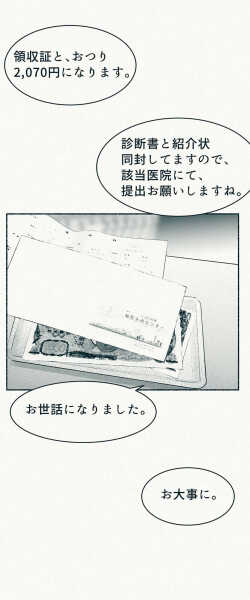 領収証と、おつり
2,070円になります。
診断書と紹介状
同封してますので、
該当医院にて、
提出お願いしますね。
お世話になりました。
お大事に。